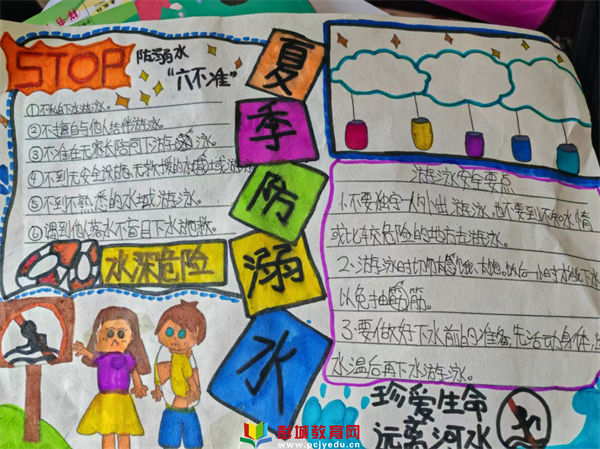 STOP
防溺水
“六不准”
①不私自下水游泳。
②不擅自与他人结伴游泳。
③不准在无家长陪同下游泳。
④不到无安全设施,无救援的水域游泳
⑤不到不熟悉的水域游泳。
⑥遇到他人落水不盲目下水施救。
水深危险
夏
季
防
溺
水
游泳安全要
1.不要独自一人外出游泳,也不要到不知水情
或比较危险的地方去游泳。
2.游泳的时
以免抽筋。
3.要做好下水前的准备,先活动身体,
水温后再下水游泳。
珍爱生命
远离河水
彭城教育网
www.pcjyedu.cn